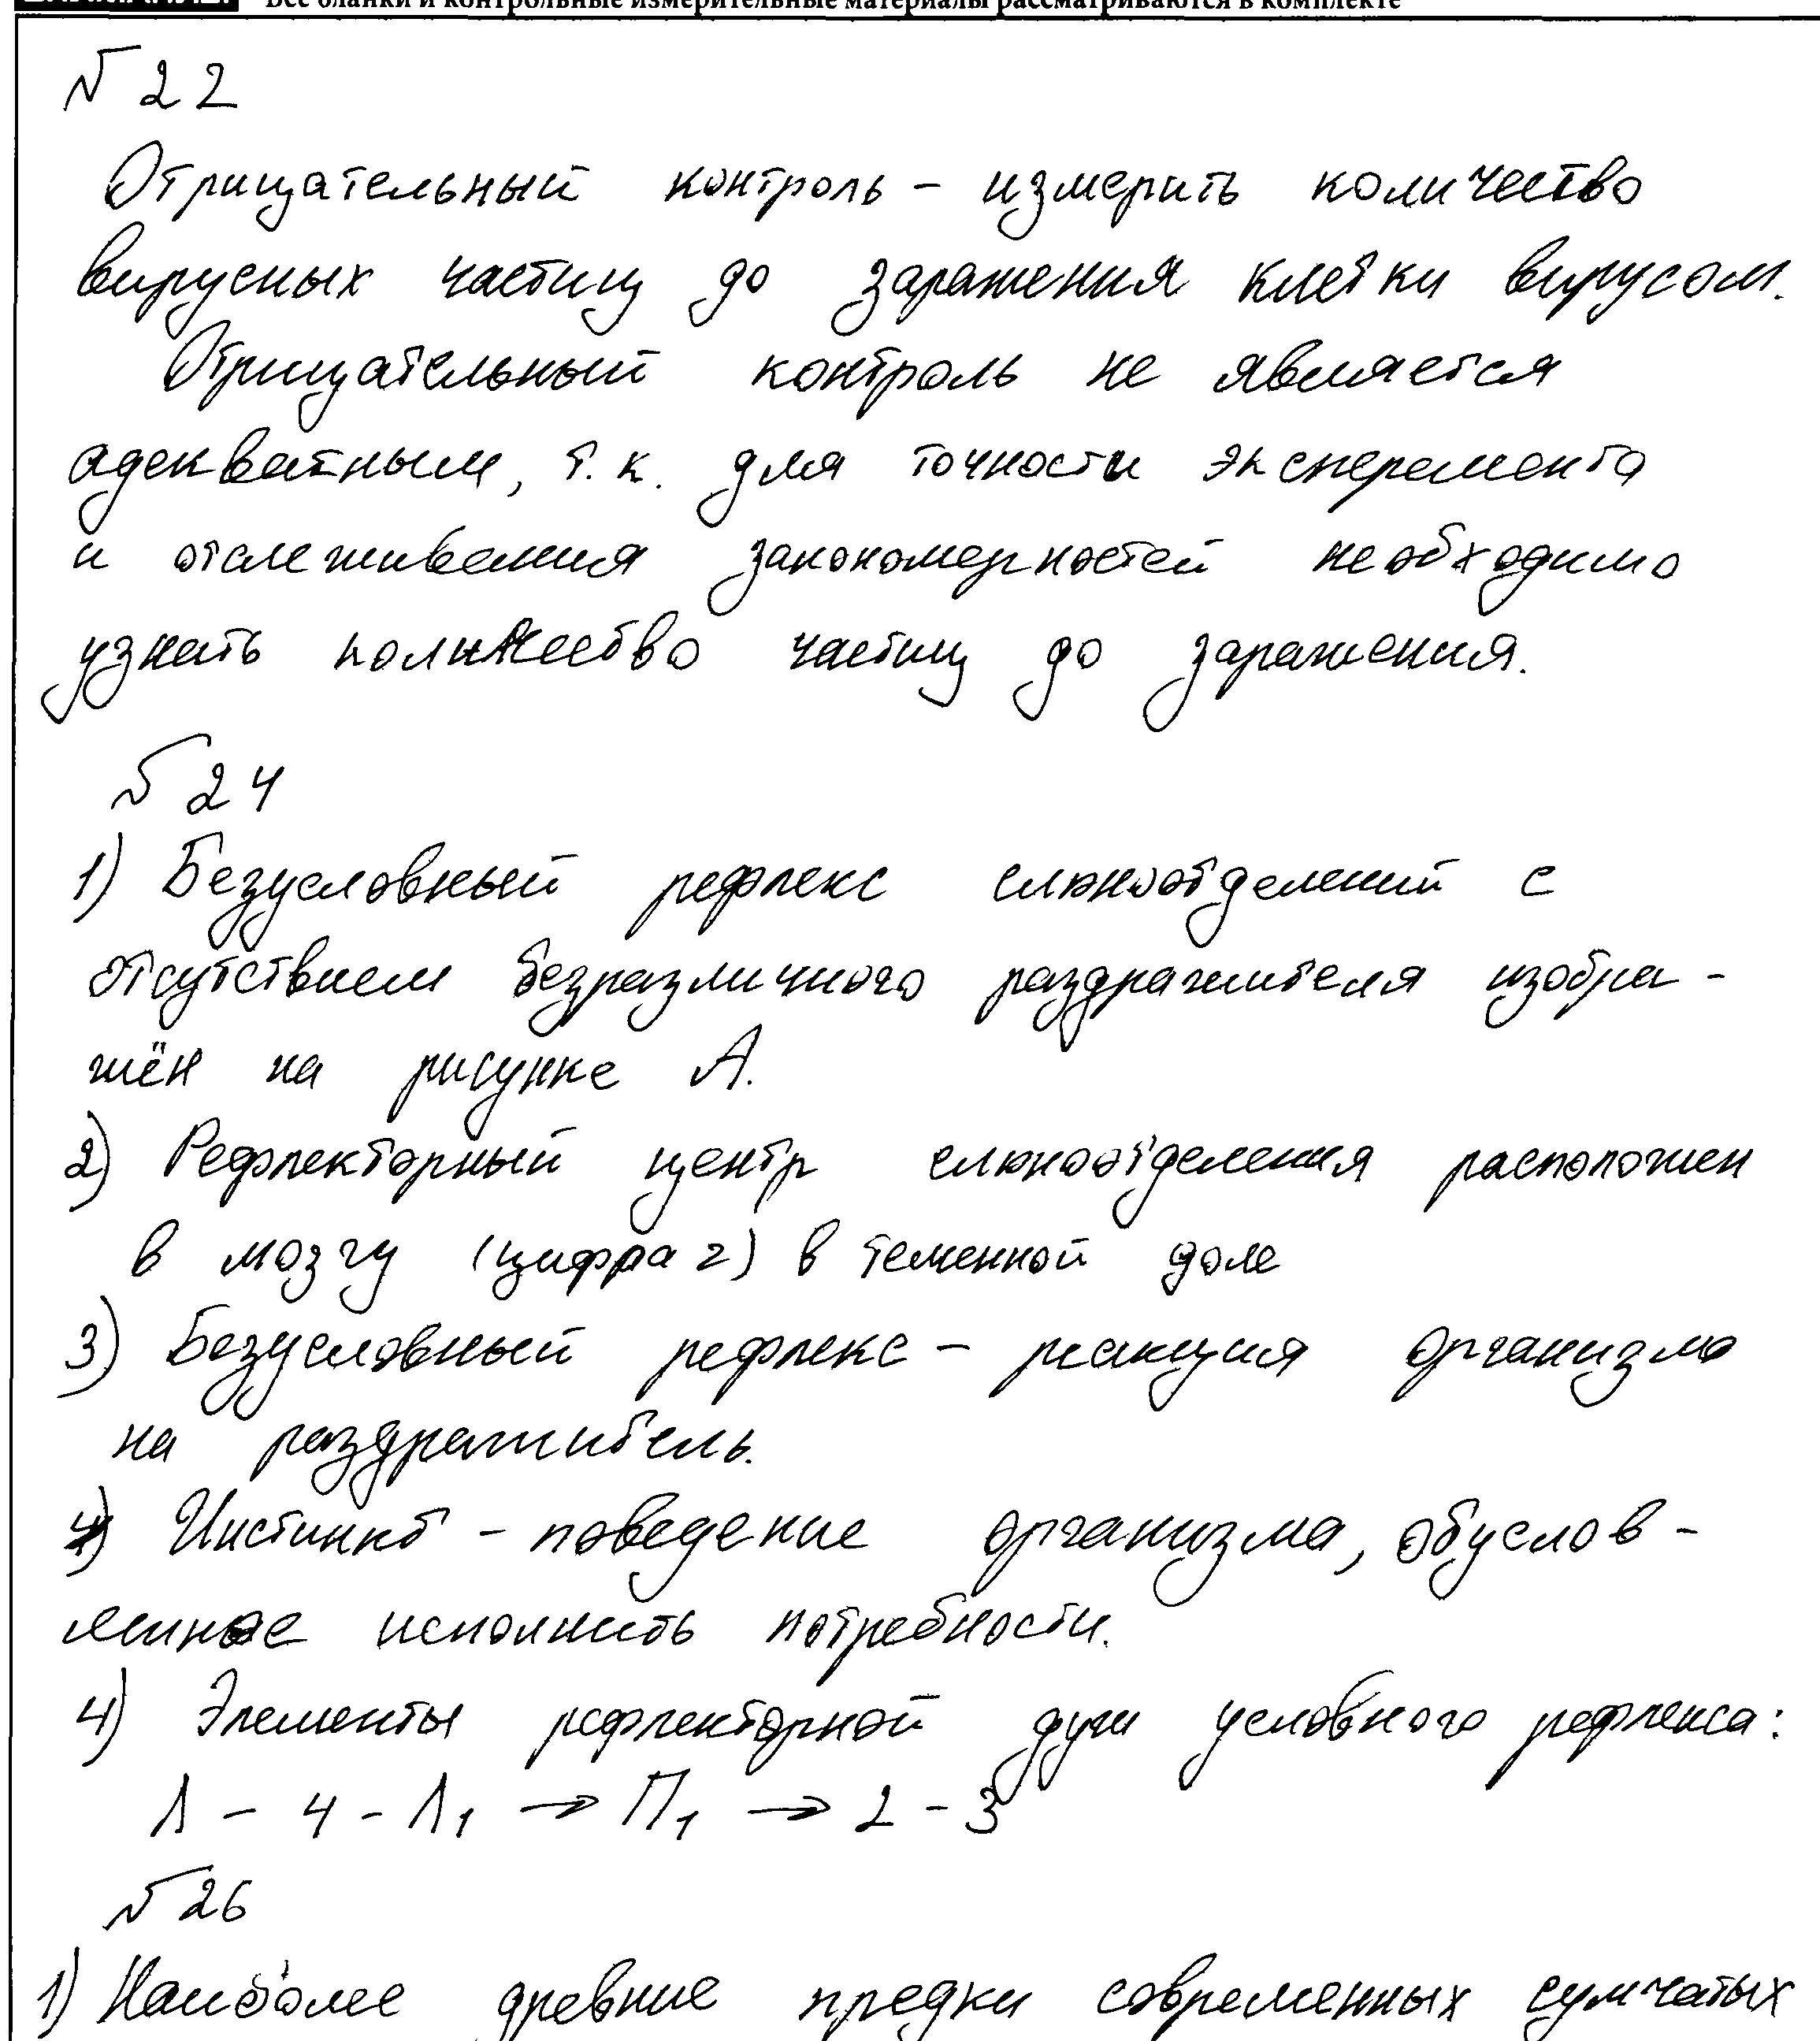 Все бланки и контрольные измерительные материалы рассматриваются в комплекте
№ 22
Отрицательный контроль – измерить количество
вирусных частиц до заражения клетки вирусом.
Отрицательный контроль не является
адекватным, т.к. для точности эксперемента
и отслеживания закономерностей необходимо
узнать количество частиц до заражения.
№ 24
1) Безусловный рефлекс слюноотделений с
отсутствием безразличного раздражителя изобра-
жён на рисунке А.
2) Рефлекторный центр слюноотделения расположен
в мозгу (цифра 2) в теменной доле
3) Безусловный рефлекс – реакция организма
на раздражитель.
4) Инстинкт – поведение организма, обуслов-
ленное исполнить потребности.
4) Элементы рефлекторной дуги условного рефлекса:
Л – 4 – Л1 → П1 → 2 – 3
№ 26
1) Наиболее древние предки современных сумчатых